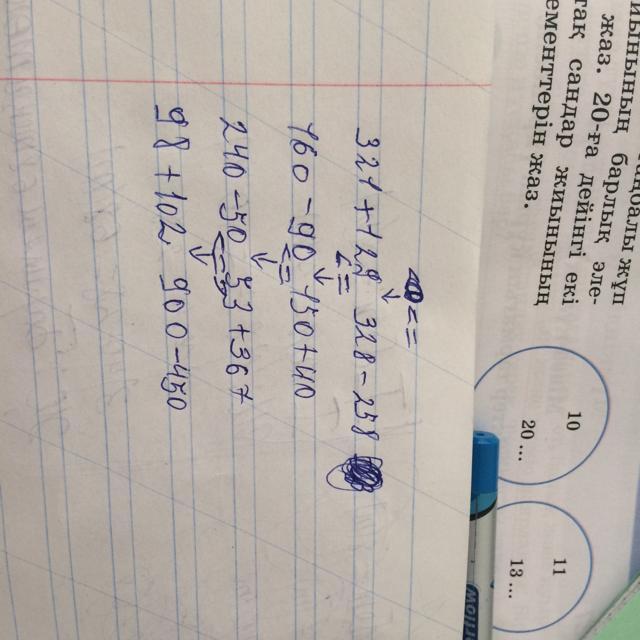 жаз. 20-ға дейінгі екі
тақ сандар жиынының
ементтерін жаз.
барлық эле-
10
20 ...
11
13 ...
< =
321 + 128 328 - 258
< =
160 - 90 150 + 40
< =
240 - 50 33 + 367
< =
98 + 102 900 - 450